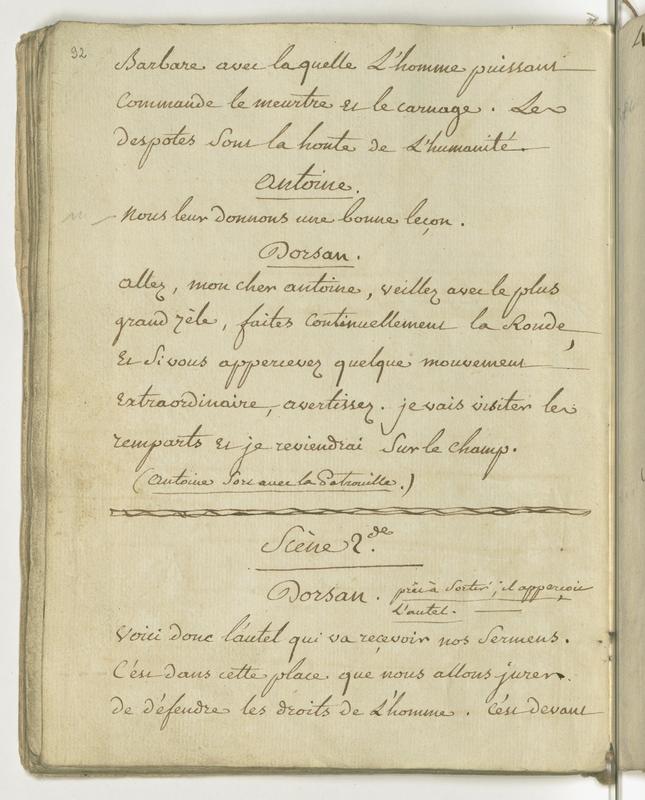 92
Barbare avec laquelle L'homme puissant
Commande le meurtre et le carnage. Les
despotes sont la honte de L'humanité.
Antoine.
Nous leur donnons une bonne leçon.
Dorsan.
allez, mon cher antoine, veillez avec le plus
grand zèle, faites continuellement la Ronde,
Et si vous appercevez quelque mouvement
Extraordinaire, avertissez. je vais visiter les
remparts et je reviendrai sur le champ.
(Antoine sort avec la Patrouille.)
Scène 2.de
Dorsan. prêt à sortir, il apperçoit
L'autel.
Voici donc l'autel qui va reçevoir nos sermens.
C'est dans cette place que nous allons jurer
de défendre les droits de L'homme. c'est devant